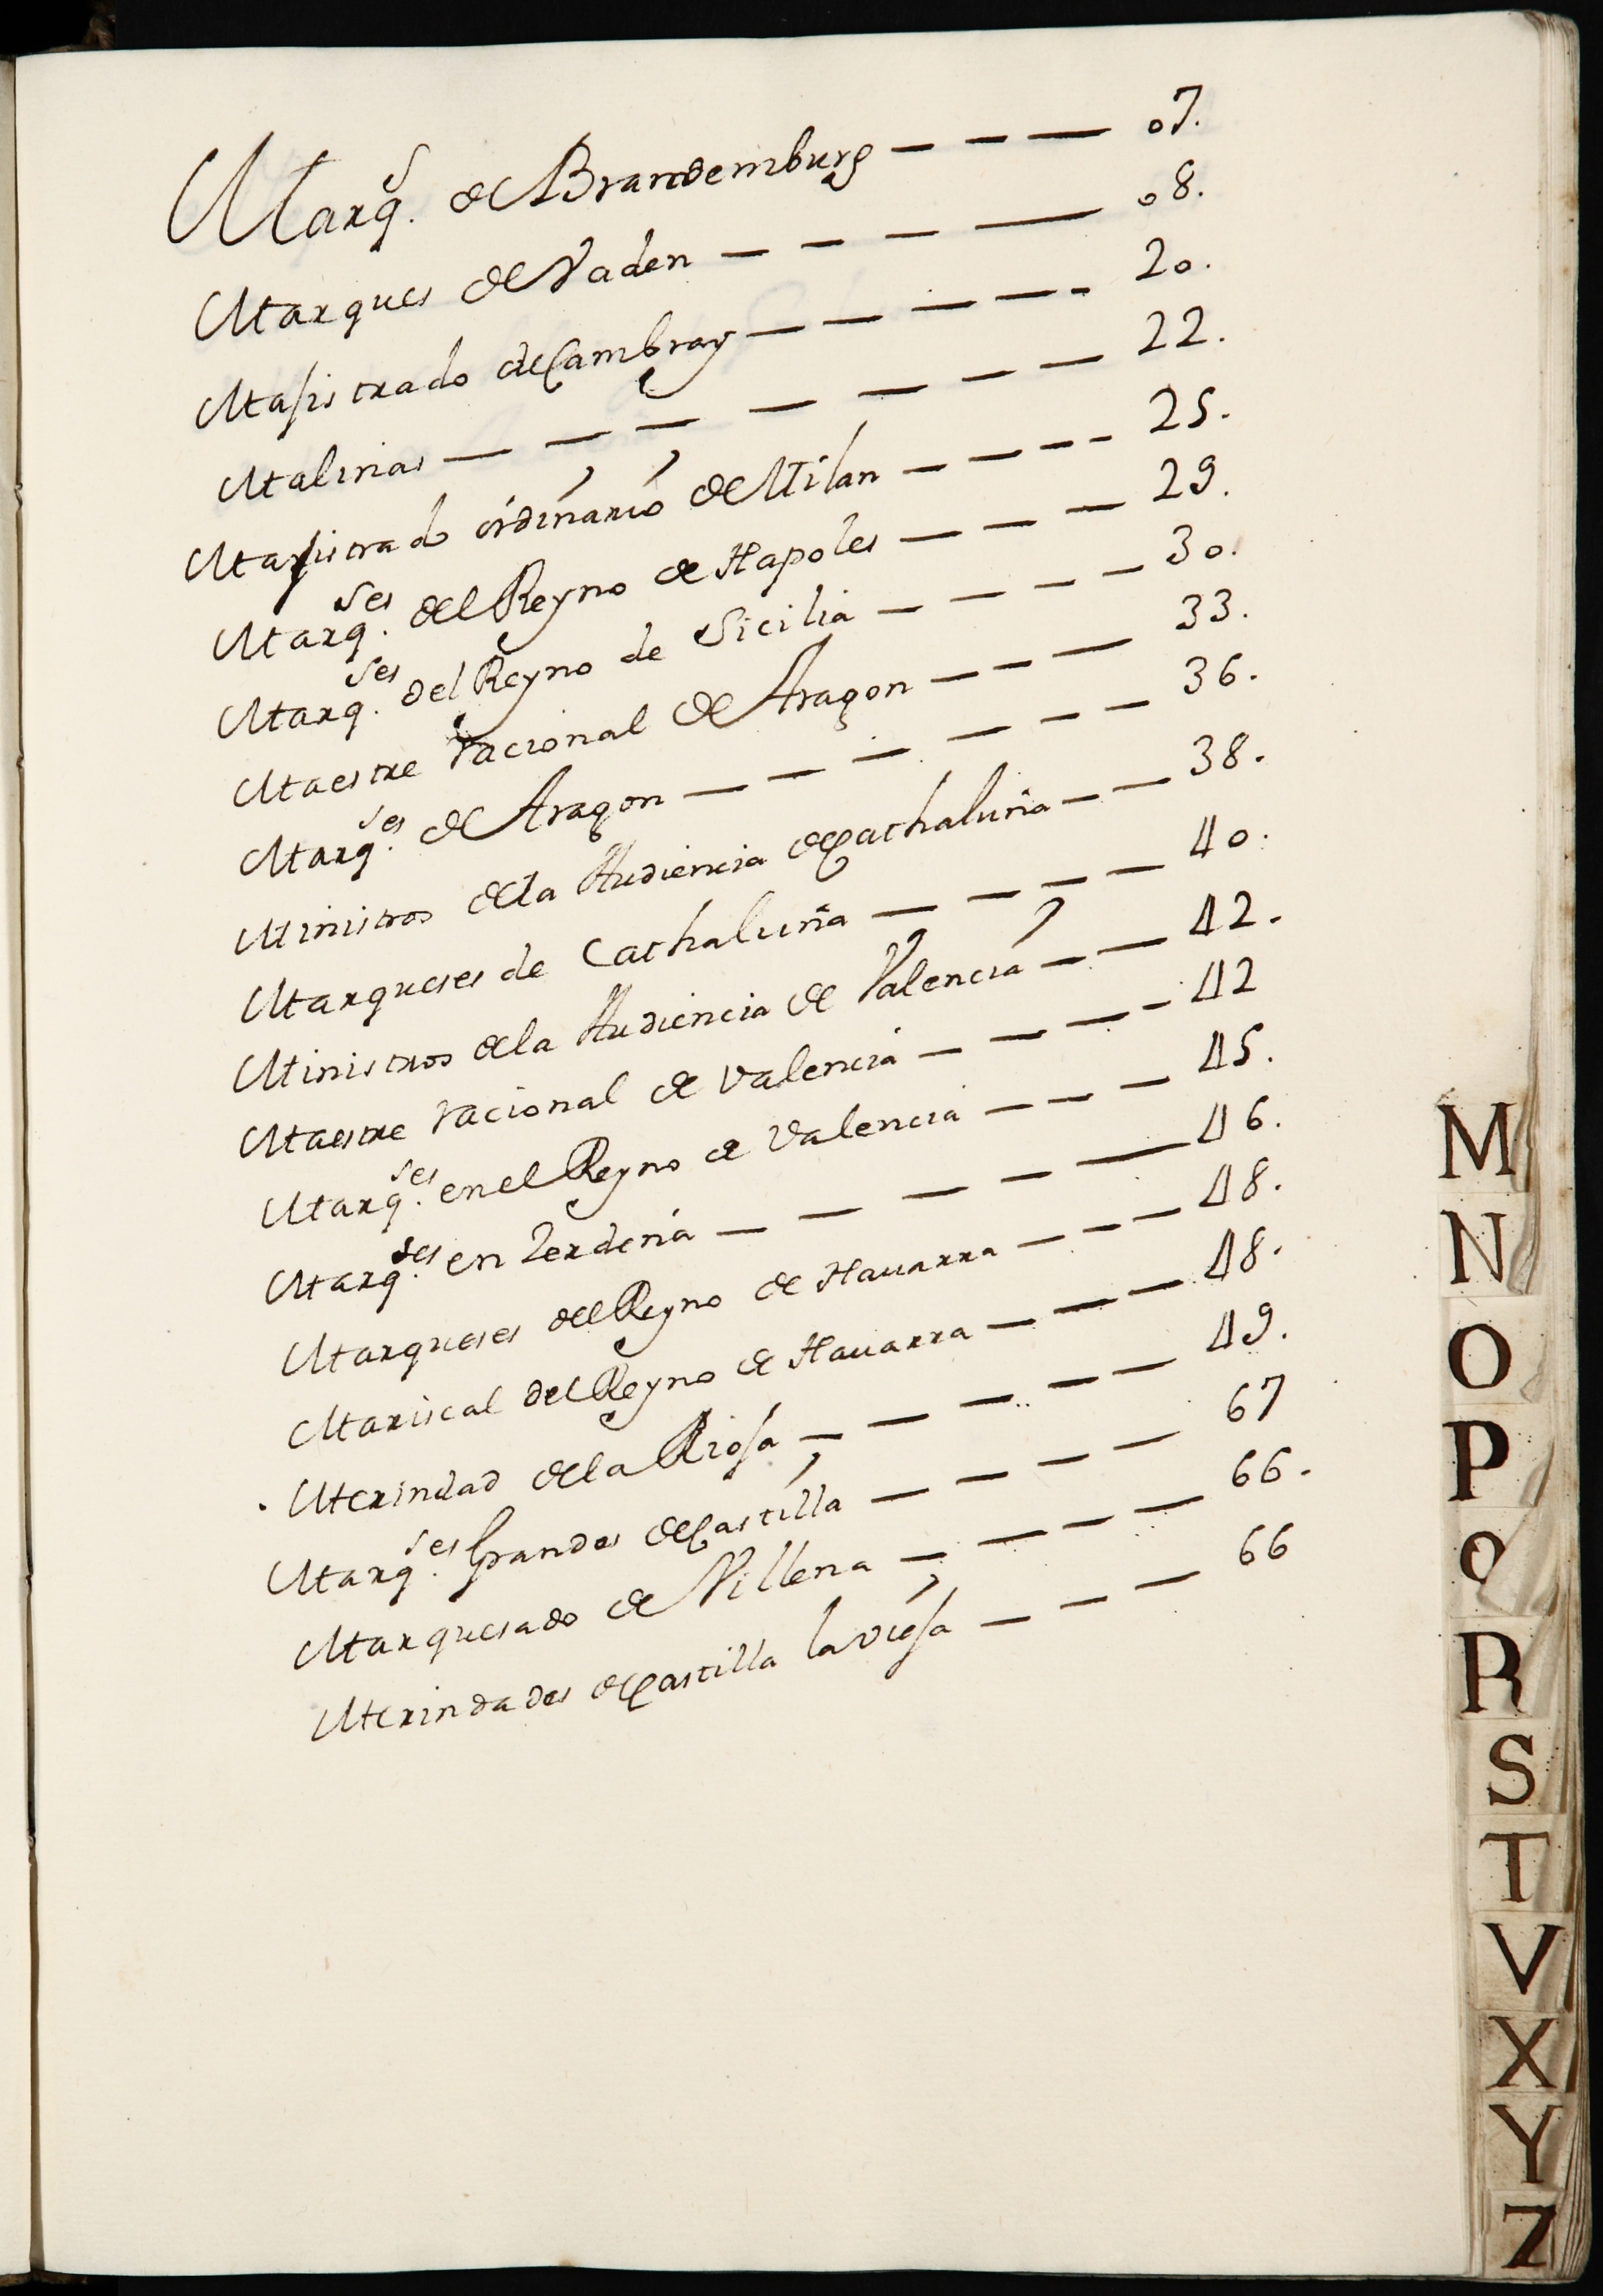 Marq.s de Brandemburg — — — 07.
Marques de Vaden — — — — 08.
Majistrado de Cambray — — — — - 20.
Malinas — — — — — — — 22.
Majistrado ordinario de Milan — — - - 25.
Marq.ses del Reyno de Napoles — — — 29.
Marq.ses del Reyno de Sicilia — — — — 30.
Maestre racional de Aragon — — — 33.
Marq.ses de Aragon — — — — — — 36.
Ministros de la Audiencia de Cathaluña — — 38.
Marqueses de Cathaluña — — — — 40.
Ministros de la Audiencia de Valencia — — 42.
Maestre racional de Valencia — — — - 42
Marq.ses en el Reyno de Valencia — — — 45.
Marq.ses en Zerdeña — — — — — 46.
Marqueses del Reyno de Nauarra — — — 48.
Mariscal del Reyno de Nauarra — — — 48.
Merindad de la Rioja — — — — — 49.
Marq.ses Grandes de Castilla — — — — 67
Marquesado de Villena — — — — 66.
Merindades de Castilla la vieja — — — 66
M
N
O
P
Q
R
S
T
V
X
Y
Z